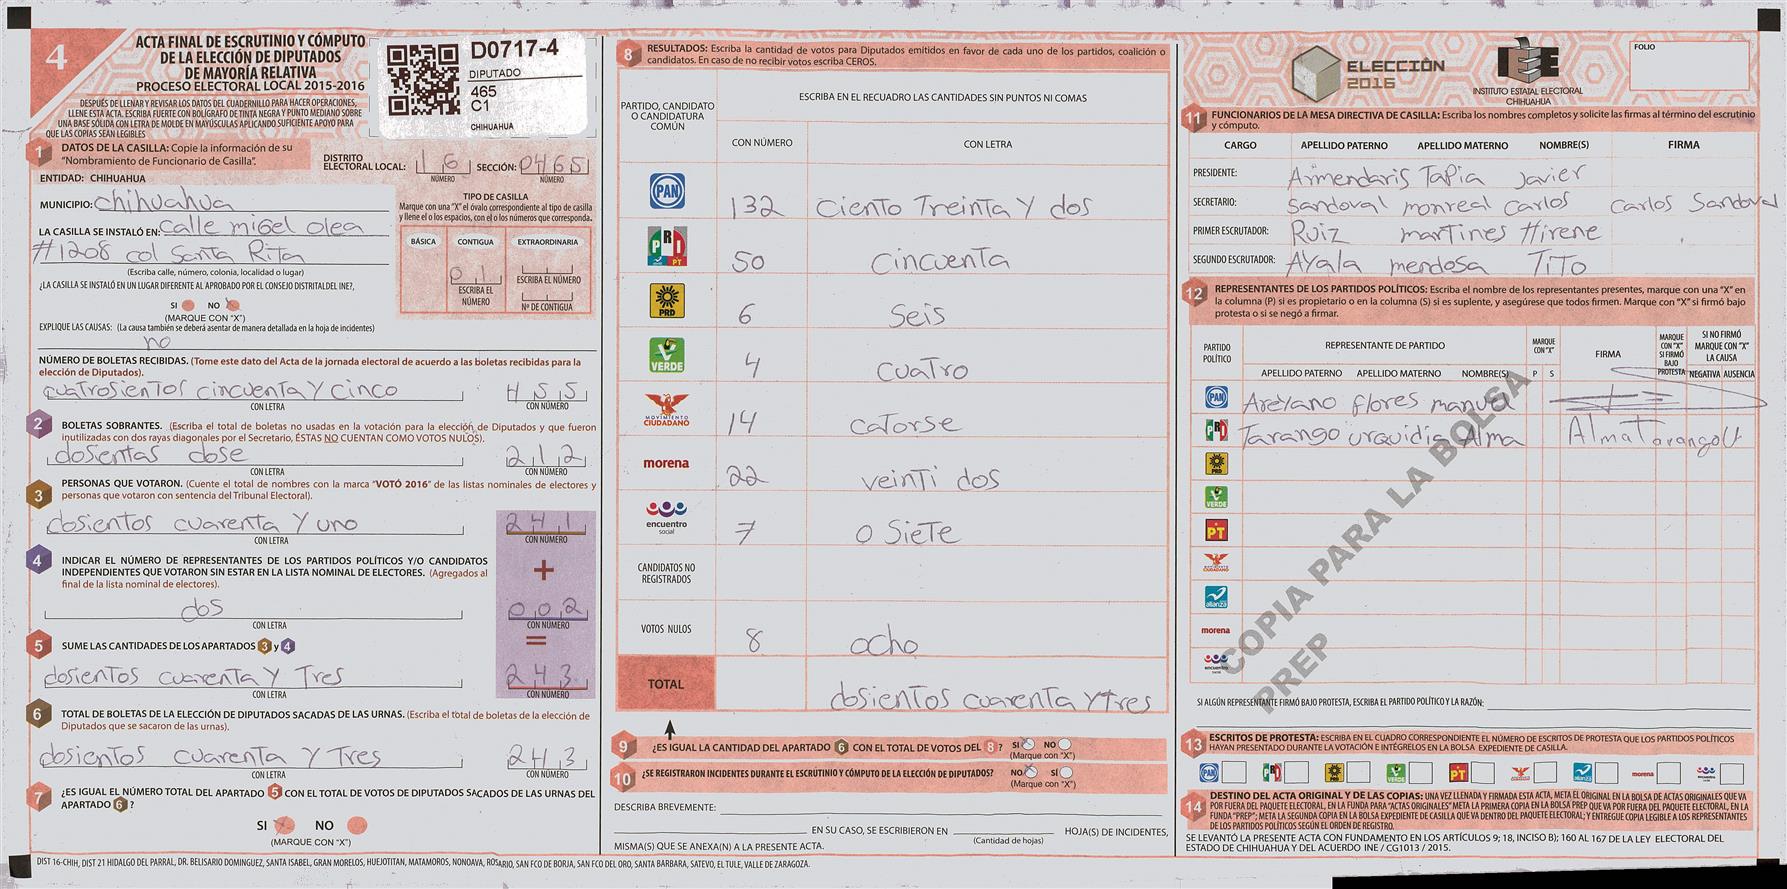 4
ACTA FINAL DE ESCRUTINIO Y CÓMPUTO
DE LA ELECCIÓN DE DIPUTADOS
DE MAYORÍA RELATIVA
PROCESO ELECTORAL LOCAL 2015-2016
DESPUÉS DE LLENAR Y REVISAR LOS DATOS DEL CUADERNILLO PARA HACER OPERACIONES,
LLENE ESTA ACTA. ESCRIBA FUERTE CON BOLÍGRAFO DE TINTA NEGRA Y PUNTO MEDIANO SOBRE
UNA BASE SÓLIDA CON LETRA DE MOLDE EN MAYÚSCULAS APLICANDO SUFICIENTE APOYO PARA
QUE LAS COPIAS SEAN LEGIBLES
D0717-4
DIPUTADO
465
C1
CHIHUAHUA
1 DATOS DE LA CASILLA: Copie la información de su
"Nombramiento de Funcionario de Casilla".
DISTRITO
ELECTORAL LOCAL: 16 SECCIÓN: 0465
NÚMERO NÚMERO
ENTIDAD: CHIHUAHUA
MUNICIPIO: chihuahua
LA CASILLA SE INSTALÓ EN: calle migel olea
#1208 col Santa Rita
(Escriba calle, número, colonia, localidad o lugar)
¿LA CASILLA SE INSTALÓ EN UN LUGAR DIFERENTE AL APROBADO POR EL CONSEJO DISTRITAL DEL INE?,
SI NO
(MARQUE CON "X")
EXPLIQUE LAS CAUSAS: (La causa también se deberá asentar de manera detallada en la hoja de incidentes)
no
TIPO DE CASILLA
Marque con una "X" el óvalo correspondiente al tipo de casilla
y llene el o los espacios, con el o los números que corresponda.
BÁSICA CONTIGUA EXTRAORDINARIA
01
ESCRIBA EL NÚMERO
ESCRIBA EL NÚMERO
Nº DE CONTIGUA
NÚMERO DE BOLETAS RECIBIDAS. (Tome este dato del Acta de la jornada electoral de acuerdo a las boletas recibidas para la
elección de Diputados).
cuatrosientos cincuenta Y cinco 455
CON LETRA CON NÚMERO
2 BOLETAS SOBRANTES. (Escriba el total de boletas no usadas en la votación para la elección de Diputados y que fueron
inutilizadas con dos rayas diagonales por el Secretario, ÉSTAS NO CUENTAN COMO VOTOS NULOS).
dosentas dose 212
CON LETRA CON NÚMERO
3 PERSONAS QUE VOTARON. (Cuente el total de nombres con la marca "VOTÓ 2016" de las listas nominales de electores y
personas que votaron con sentencia del Tribunal Electoral).
dosientos cuarenta Y uno 241
CON LETRA CON NÚMERO
4 INDICAR EL NÚMERO DE REPRESENTANTES DE LOS PARTIDOS POLÍTICOS Y/O CANDIDATOS
INDEPENDIENTES QUE VOTARON SIN ESTAR EN LA LISTA NOMINAL DE ELECTORES. (Agregados al
final de la lista nominal de electores).
+
dos 002
CON LETRA CON NÚMERO
5 SUME LAS CANTIDADES DE LOS APARTADOS 3 y 4
=
dosientos cuarenta Y Tres 243
CON LETRA CON NÚMERO
6 TOTAL DE BOLETAS DE LA ELECCIÓN DE DIPUTADOS SACADAS DE LAS URNAS. (Escriba el total de boletas de la elección de
Diputados que se sacaron de las urnas).
dosientos cuarenta Y Tres 243
CON LETRA CON NÚMERO
7 ¿ES IGUAL EL NÚMERO TOTAL DEL APARTADO 5 CON EL TOTAL DE VOTOS DE DIPUTADOS SACADOS DE LAS URNAS DEL
APARTADO 6?
SI NO
(MARQUE CON "X")
DIST 16-CHIH, DIST 21 HIDALGO DEL PARRAL, DR. BELISARIO DOMINGUEZ, SANTA ISABEL, GRAN MORELOS, HUEJOTITAN, MATAMOROS, NONOAVA, ROSARIO, SAN FCO DE BORJA, SAN FCO DEL ORO, SANTA BARBARA, SATEVO, EL TULE, VALLE DE ZARAGOZA.
8 RESULTADOS: Escriba la cantidad de votos para Diputados emitidos en favor de cada uno de los partidos, coalición o
candidatos. En caso de no recibir votos escriba CEROS.
PARTIDO, CANDIDATO
O CANDIDATURA
COMÚN
ESCRIBA EN EL RECUADRO LAS CANTIDADES SIN PUNTOS NI COMAS
CON NÚMERO CON LETRA
PAN 132 ciento Treinta Y dos
PRI PT 50 cincuenta
PRD 6 Seis
VERDE 4 cuatro
MOVIMIENTO CIUDADANO 14 catorse
morena 22 veinti dos
encuentro social 7 o siete
CANDIDATOS NO
REGISTRADOS
VOTOS NULOS 8 ocho
TOTAL dosientos cuarenta y tres
9 ¿ES IGUAL LA CANTIDAD DEL APARTADO 6 CON EL TOTAL DE VOTOS DEL 8? SI NO
(Marque con "X")
10 ¿SE REGISTRARON INCIDENTES DURANTE EL ESCRUTINIO Y CÓMPUTO DE LA ELECCIÓN DE DIPUTADOS? NO SÍ
(Marque con "X")
DESCRIBA BREVEMENTE:
EN SU CASO, SE ESCRIBIERON EN HOJA(S) DE INCIDENTES,
(Cantidad de hojas)
MISMA(S) QUE SE ANEXA(N) A LA PRESENTE ACTA.
ELECCIÓN
2016
IEE
INSTITUTO ESTATAL ELECTORAL
CHIHUAHUA
FOLIO
11 FUNCIONARIOS DE LA MESA DIRECTIVA DE CASILLA: Escriba los nombres completos y solicite las firmas al término del escrutinio
y cómputo.
CARGO APELLIDO PATERNO APELLIDO MATERNO NOMBRE(S) FIRMA
PRESIDENTE: Armendaris Tapia Javier
SECRETARIO: Sandoval monreal Carlos Carlos Sandoval
PRIMER ESCRUTADOR: Ruiz martines Hirene
SEGUNDO ESCRUTADOR: AYala mendosa TiTo
12 REPRESENTANTES DE LOS PARTIDOS POLÍTICOS: Escriba el nombre de los representantes presentes, marque con una "X" en
la columna (P) si es propietario o en la columna (S) si es suplente, y asegúrese que todos firmen. Marque con "X" si firmó bajo
protesta o si se negó a firmar.
PARTIDO
POLÍTICO
REPRESENTANTE DE PARTIDO
MARQUE CON "X"
FIRMA
MARQUE CON "X" SI FIRMÓ BAJO PROTESTA
SI NO FIRMÓ MARQUE CON "X" LA CAUSA
APELLIDO PATERNO APELLIDO MATERNO NOMBRE(S) P S NEGATIVA AUSENCIA
PAN Areyano flores manuel
PRI Tarango urquidia Alma Alma Tarango U
PRD
VERDE
PT
MOVIMIENTO CIUDADANO
alianza
morena
encuentro social
COPIA PARA LA BOLSA
PREP
SI ALGÚN REPRESENTANTE FIRMÓ BAJO PROTESTA, ESCRIBA EL PARTIDO POLÍTICO Y LA RAZÓN:
13 ESCRITOS DE PROTESTA: ESCRIBA EN EL CUADRO CORRESPONDIENTE EL NÚMERO DE ESCRITOS DE PROTESTA QUE LOS PARTIDOS POLÍTICOS
HAYAN PRESENTADO DURANTE LA VOTACIÓN E INTÉGRELOS EN LA BOLSA EXPEDIENTE DE CASILLA.
PAN PRI PRD VERDE PT alianza morena
14 DESTINO DEL ACTA ORIGINAL Y DE LAS COPIAS: UNA VEZ LLENADA Y FIRMADA ESTA ACTA, META EL ORIGINAL EN LA BOLSA DE ACTAS ORIGINALES QUE VA
POR FUERA DEL PAQUETE ELECTORAL, EN LA FUNDA PARA "ACTAS ORIGINALES" META LA PRIMERA COPIA EN LA BOLSA PREP QUE VA POR FUERA DEL PAQUETE ELECTORAL, EN LA
FUNDA "PREP"; META LA SEGUNDA COPIA EN LA BOLSA EXPEDIENTE DE CASILLA QUE VA DENTRO DEL PAQUETE ELECTORAL; Y ENTREGUE COPIA LEGIBLE A LOS REPRESENTANTES
DE LOS PARTIDOS POLÍTICOS SEGÚN EL ORDEN DE REGISTRO.
SE LEVANTÓ LA PRESENTE ACTA CON FUNDAMENTO EN LOS ARTÍCULOS 9; 18, INCISO B); 160 AL 167 DE LA LEY ELECTORAL DEL
ESTADO DE CHIHUAHUA Y DEL ACUERDO INE / CG1013 / 2015.